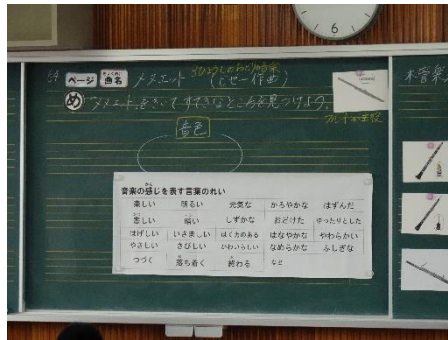 64 ページ 曲名 メヌエット (ビゼー作曲)
め メヌエットをきいて、すてきなところを見つけよう。
フルートが主役
木管楽
音色
音楽の感じを表す言葉のれい
楽しい 明るい 元気な かろやかな はずんだ
悲しい 暗い しずかな おどけた ゆったりとした
はげしい いさましい はく力のある はなやかな やわらかい
やさしい さびしい かわいらしい なめらかな ふしぎな
つづく 落ち着く 終わる など
6